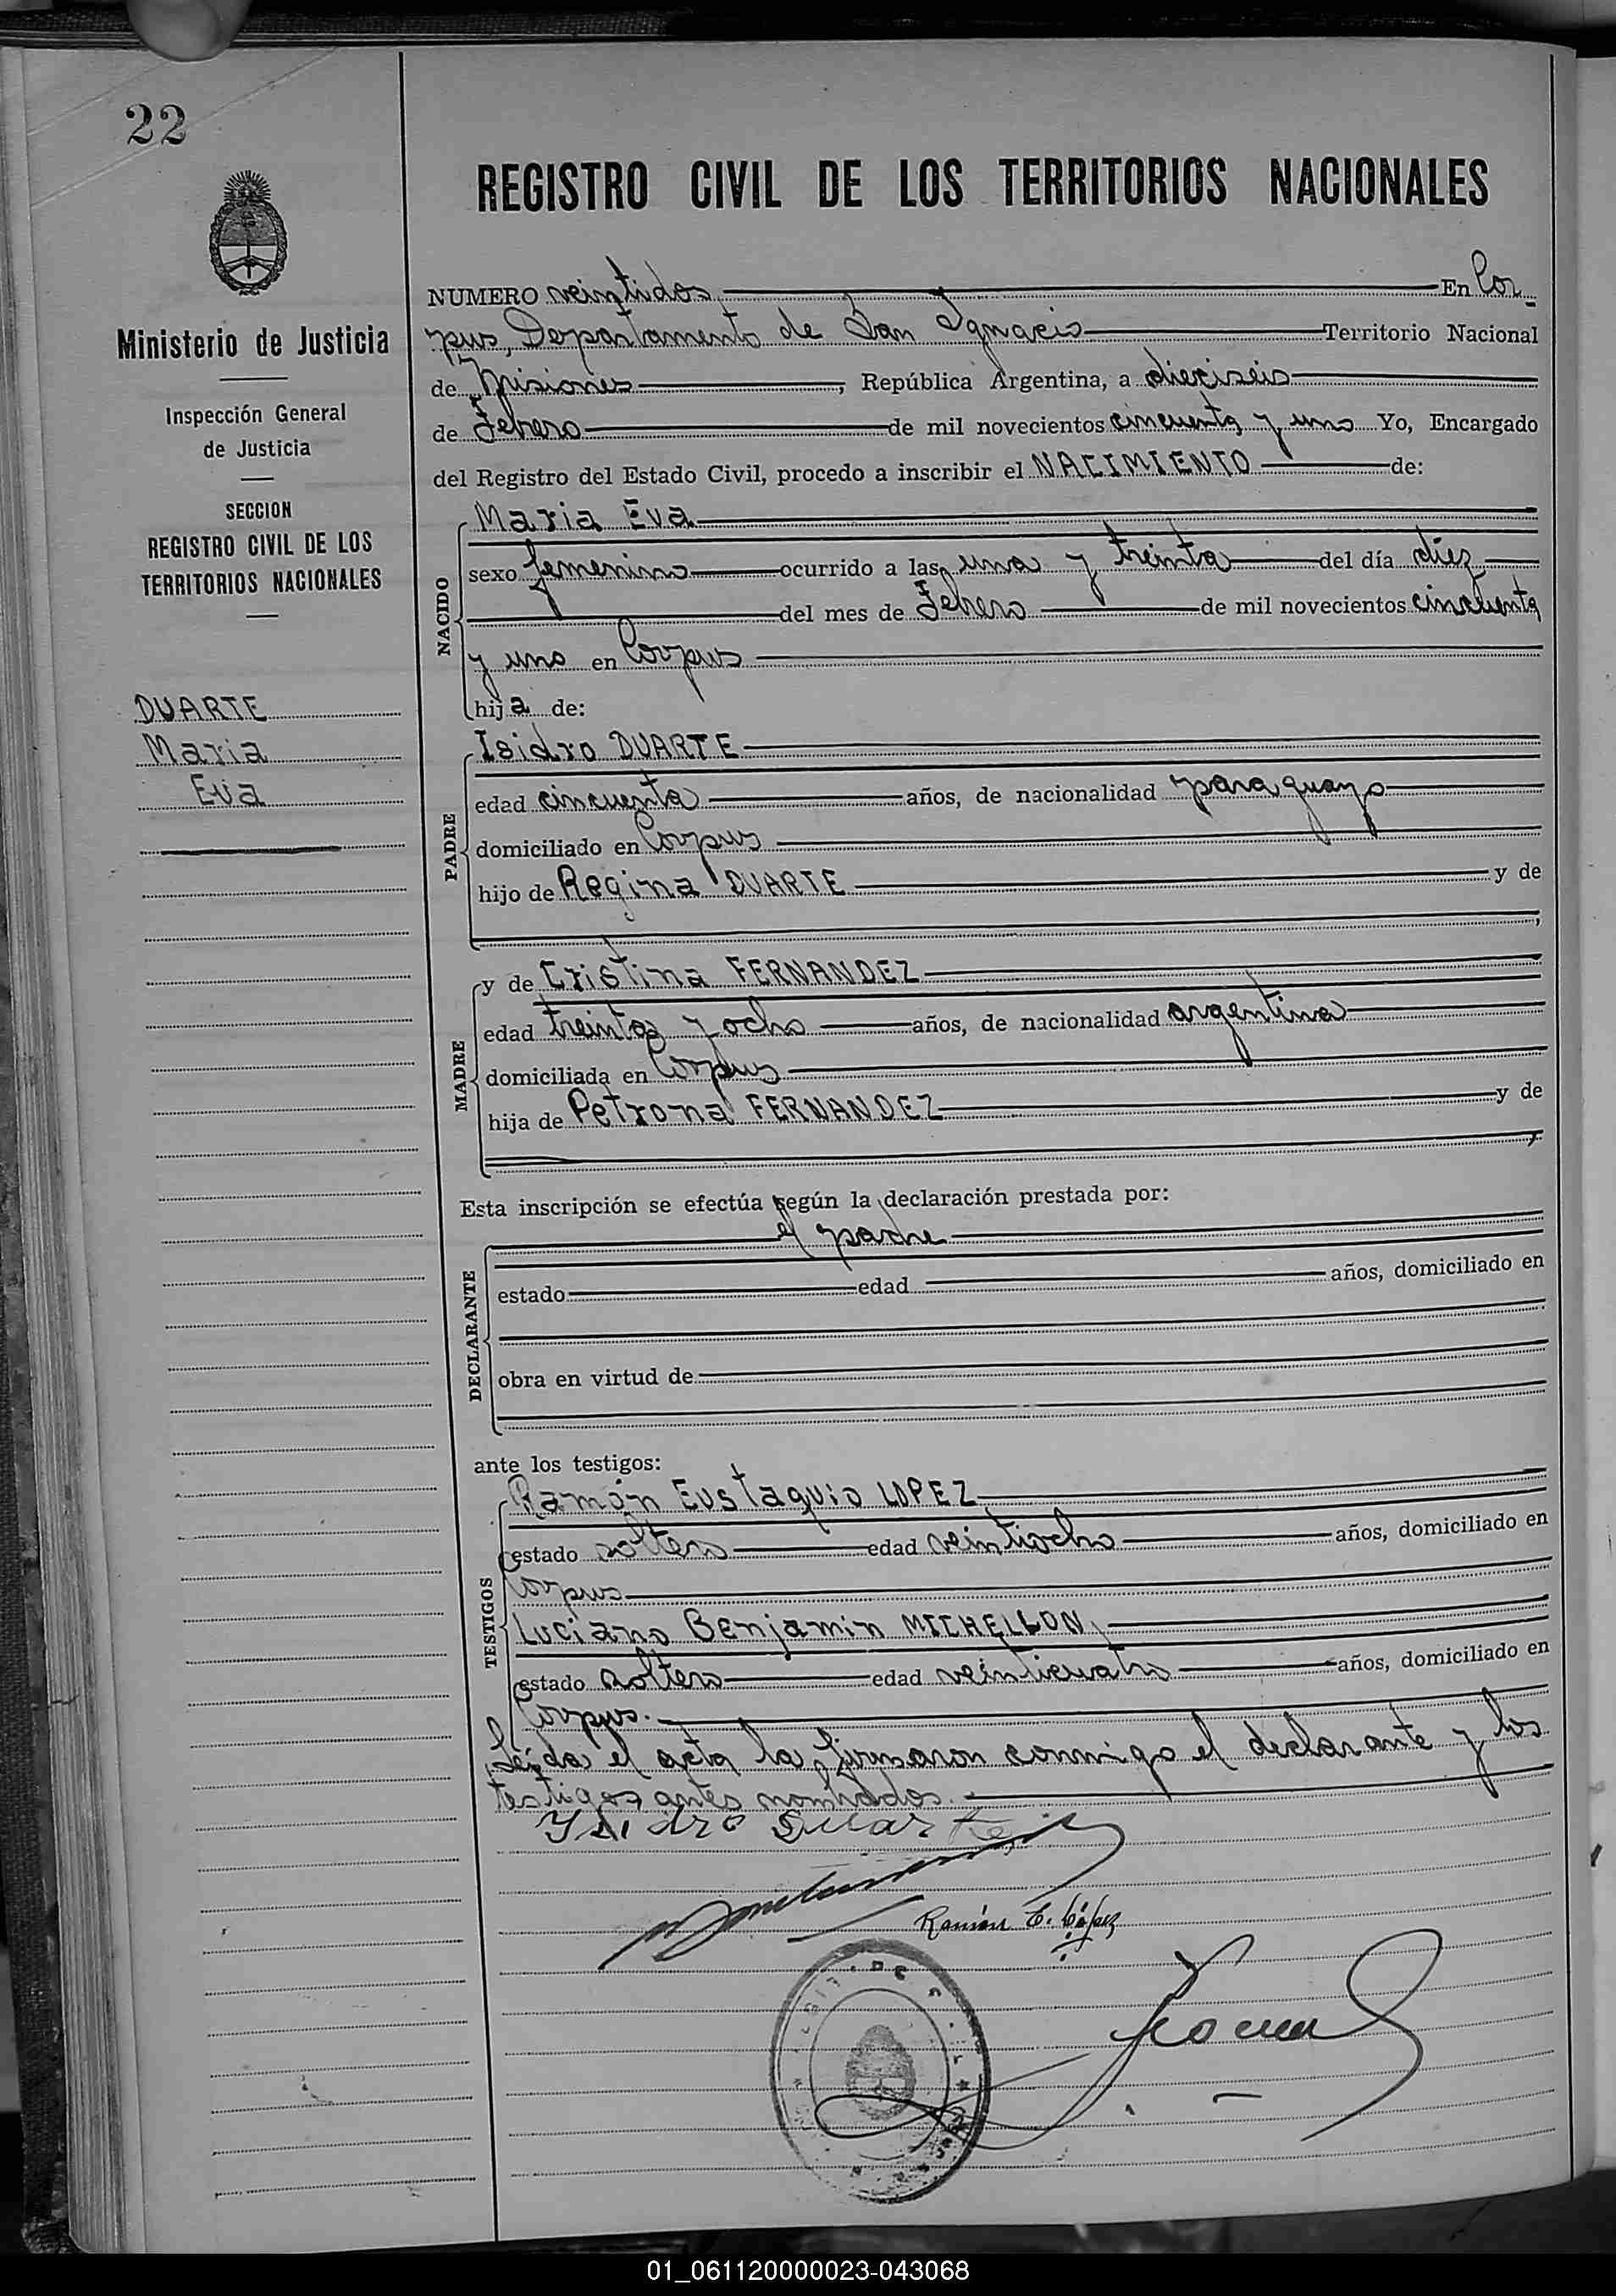 22
Ministerio de Justicia
Inspección General
de Justicia
SECCION
REGISTRO CIVIL DE LOS
TERRITORIOS NACIONALES
DUARTE
Maria
Eva
REGISTRO CIVIL DE LOS TERRITORIOS NACIONALES
NUMERO veintidos En Cor-
pus, Departamento de San Ignacio Territorio Nacional
de Misiones, República Argentina, a dieciséis
de Febrero de mil novecientos cincuenta y uno Yo, Encargado
del Registro del Estado Civil, procedo a inscribir el NACIMIENTO de:
NACIDO
Maria Eva
sexo femenino ocurrido a las una y treinta del día diez
del mes de Febrero de mil novecientos cincuenta
y uno en Corpus
hija de:
PADRE
Isidro DUARTE
edad cincuenta años, de nacionalidad paraguayo
domiciliado en Corpus
hijo de Regina DUARTE y de
MADRE
y de Cristina FERNANDEZ
edad treinta y ocho años, de nacionalidad argentina
domiciliada en Corpus
hija de Petrona FERNANDEZ y de
Esta inscripción se efectúa según la declaración prestada por:
DECLARANTE
el padre
estado edad años, domiciliado en
obra en virtud de
ante los testigos:
TESTIGOS
Ramón Eustaquio LOPEZ,
estado soltero edad veintiocho años, domiciliado en
Corpus
Luciano Benjamin MICHELLON,
estado soltero edad veinticuatro años, domiciliado en
Corpus.
Leída el acta la firmaron conmigo el declarante y los
testigos antes nombrados.
Ysidro Duarte
Ramón E. López
01_061120000023-043068